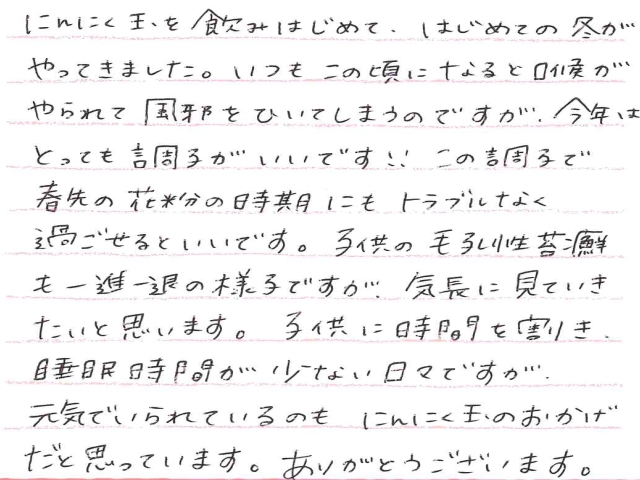 にんにく玉を飲みはじめて、はじめての冬が
やってきました。いつもこの頃になると喉が
やられて風邪をひいてしまうのですが、今年は
とっても調子がいいです!! この調子で
春先の花粉の時期にもトラブルなく
過ごせるといいです。子供の毛孔性苔癬
も一進一退の様子ですが、気長に見ていき
たいと思います。子供に時間を割き、
睡眠時間が少ない日々ですが、
元気でいられているのも にんにく玉のおかげ
だと思っています。ありがとうございます。